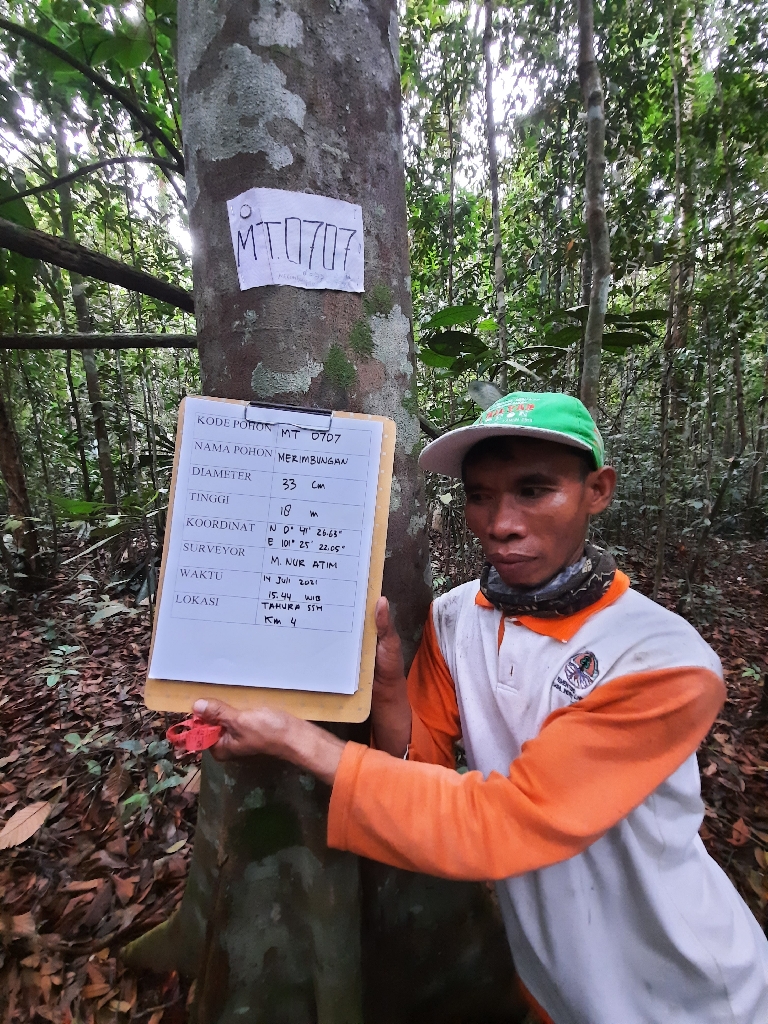 MT.0707
KODE POHON MT 0707
NAMA POHON MERIMBUNGAN
DIAMETER 33 cm
TINGGI 18 m
KOORDINAT N 0° 41' 26.63"
E 101° 25' 22.05"
SURVEYOR M. NUR ATIM
WAKTU 14 JULI 2021
15.44 WIB
LOKASI TAHURA SSH
KM 4